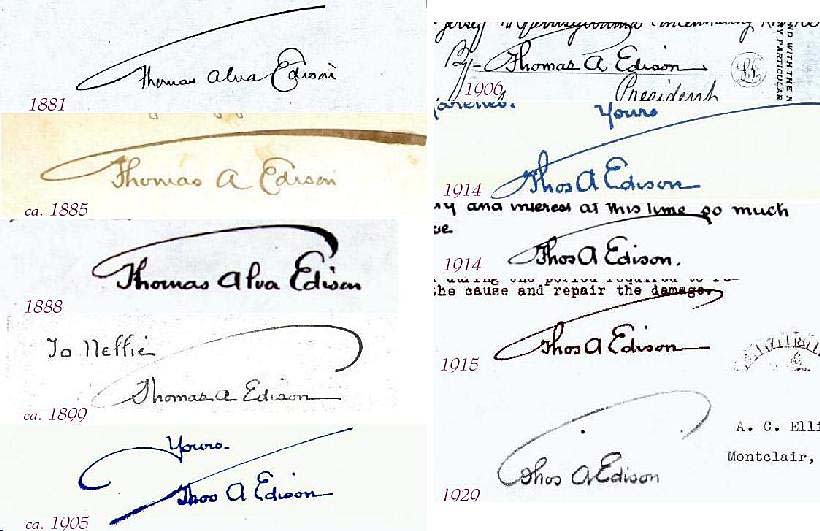 Thomas Alva Edison
1881
Thomas A Edison
ca. 1885
Thomas Alva Edison
1888
To Nellie
Thomas A Edison
ca. 1899
Yours
Thos A Edison
ca. 1905
By- Thomas A Edison
President
1906
ED WITH THE
Y PARTICULAR
Yours
Thos A Edison
1914
and interest at this time so much
Thos A Edison.
1914
during the period required to
the cause and repair the damage.
Thos A Edison
1915
Thos A Edison
1929
A. C. Elli
Montclair,